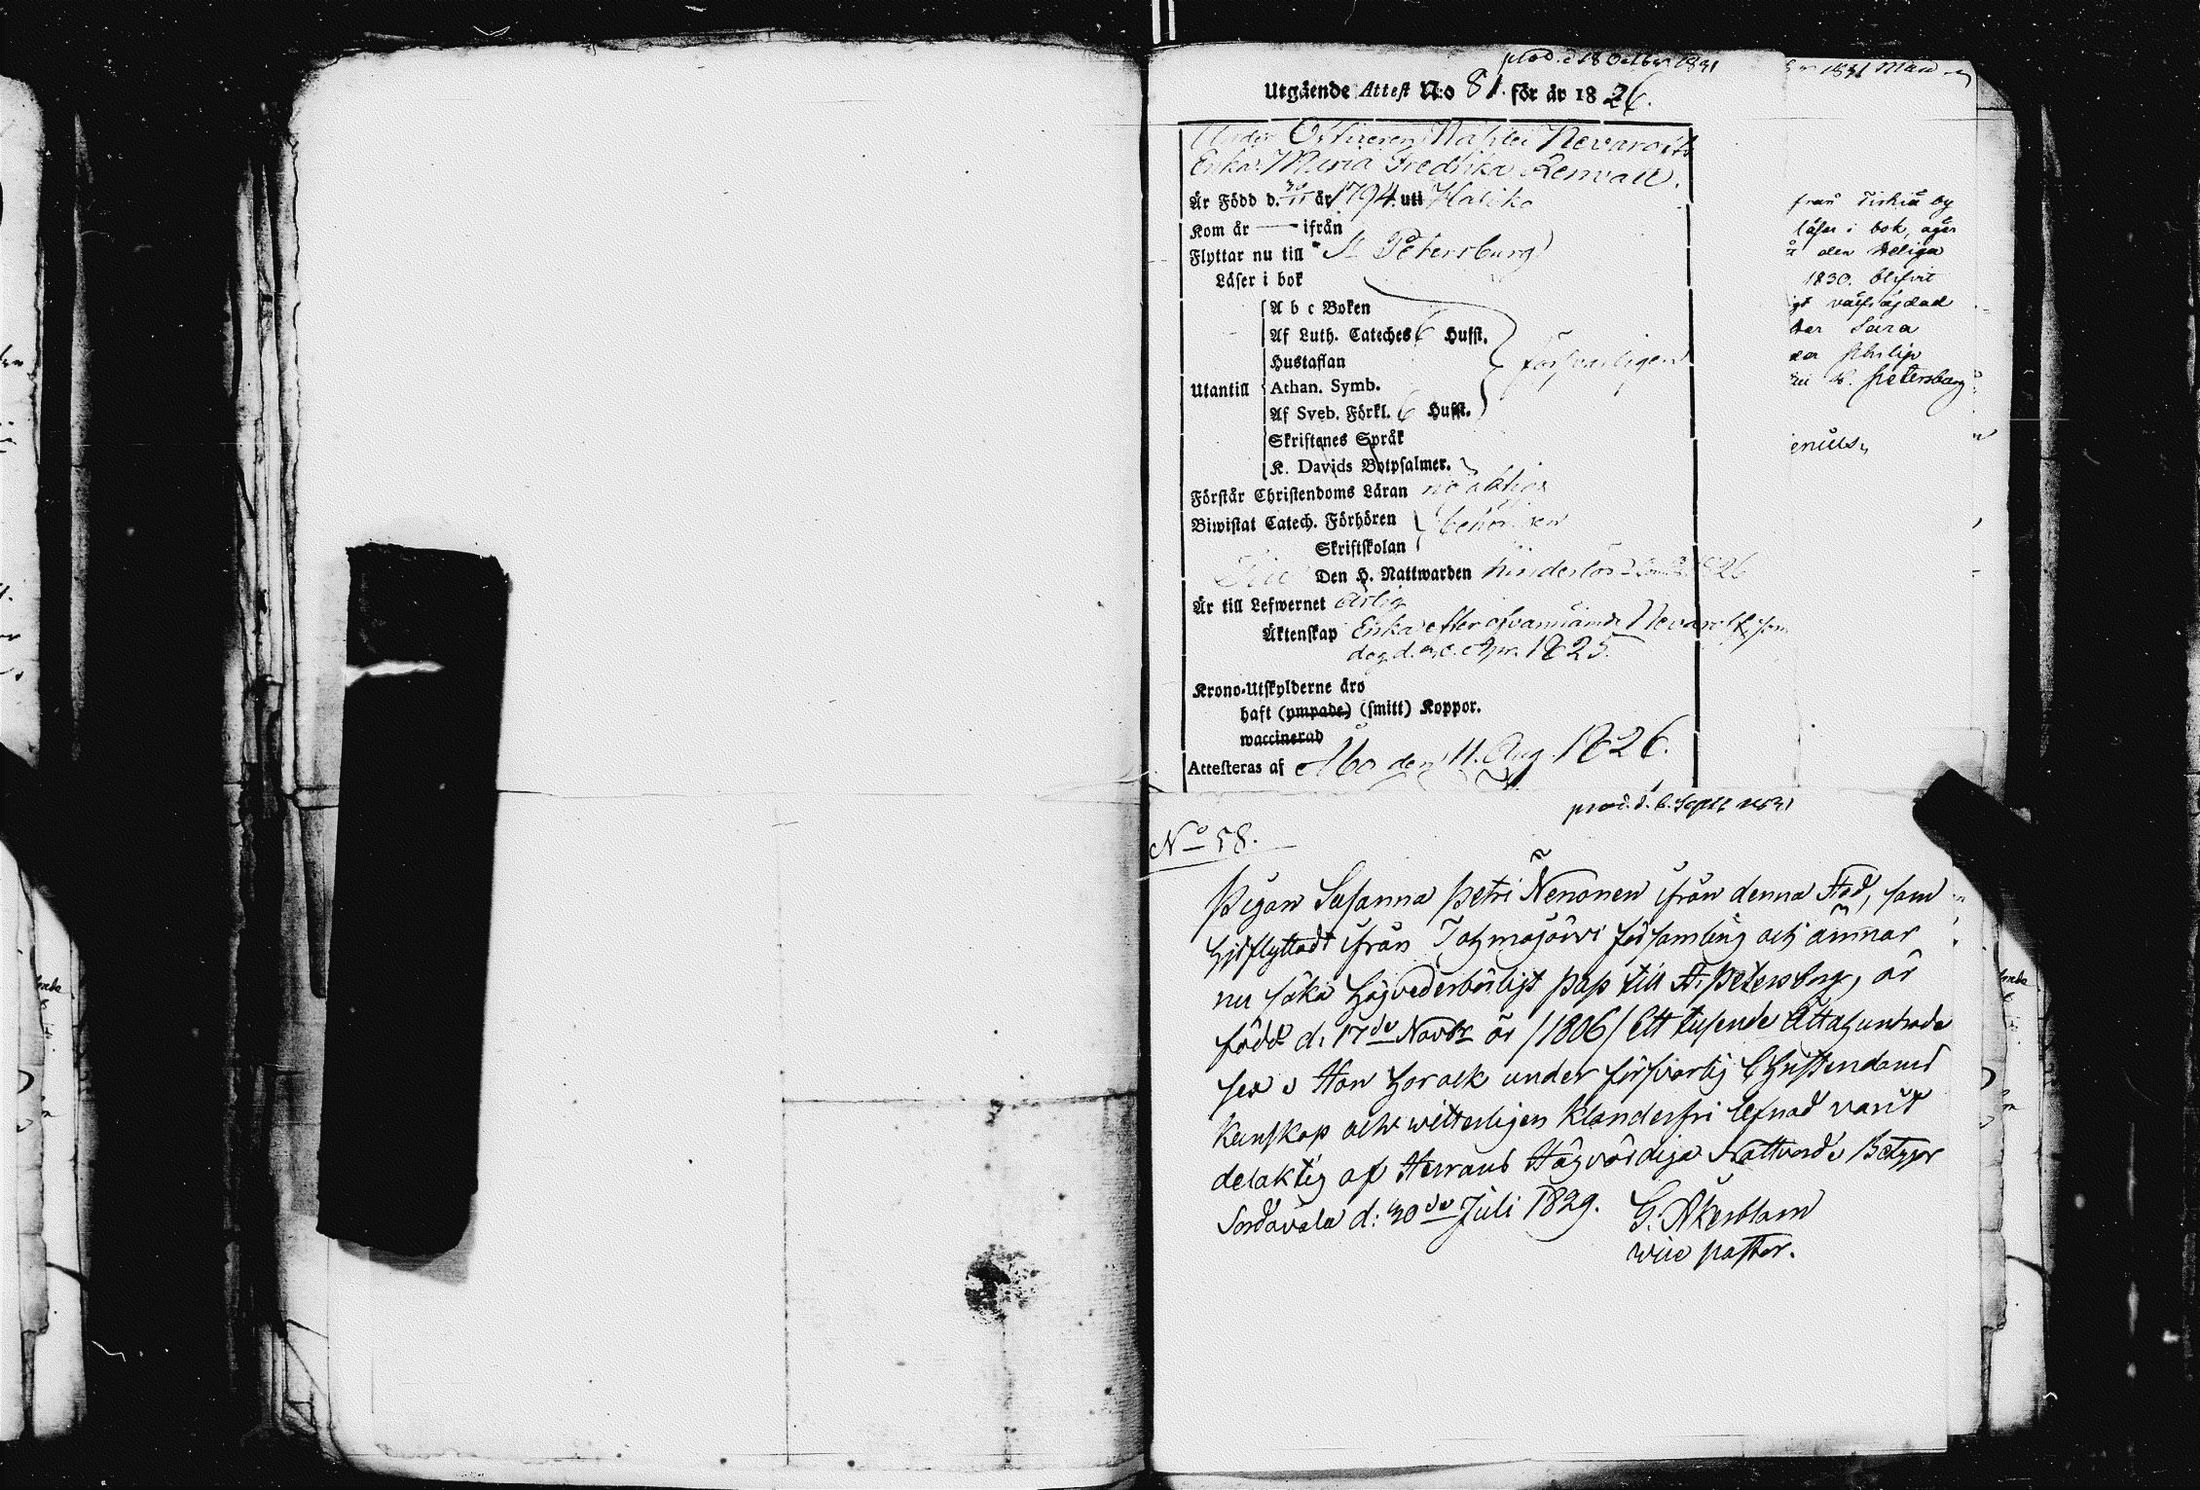 prod. d. 18 October 1831
Utgående Attest No 81. för år 1826.
Under Officeren Nevaroth
Enka Maria Fredrika Renvall.
Är Född d. 30/11 år 1794. uti Haliko
Kom år — ifrån
Flyttar nu till St Petersburg
Läser i bok
A b c Boken
Af Luth. Cateches 6 Hufst.
Hustaflan
försvarligen
Utantill Athan. Symb.
Af Sveb. Förkl. 6 Hufst.
Skriftenes Språk
K. Davids Botpsalmer.
Förstår Christendoms Läran nödtigt
Biwistat Catech. Förhören
Skriftskolan
Den H. Nattwarden hinderlös 1826
Är till Lefwernet ärlig
Äktenskap Enka efter ofvannämnde Nevaroth, som
dog d. 1825.
Krono-Utskylderne äro
haft (ympade) (smitt) Koppor.
waccinerad
Attesteras af Åbo den 11. Aug. 1826.
1831
från Tiskiä by
läser i bok, äger
den Heliga
1830. blifvit
Sara
Philip
St. Petersburg
prod. d. 6. Sept 1831
No 58.
Pigan Susanna Petri Nenonen ifrån denna Stad, som
hitflyttadt ifrån Tohmajärvi församling och ämnar
nu söka högvederbörligt pass till St. Petersburg, är
född d. 17de Novbr år /1806/ Ett tusende Åttahundrade
sex. Hon har ock under försvarlig Christendoms
kunskap och witterligen klanderfri lefnad varit
delaktig af Herrans Högvördiga Nattvard. Betygar
Sordavala d: 30de Juli 1829. G. Åkerblom
vice pastor.